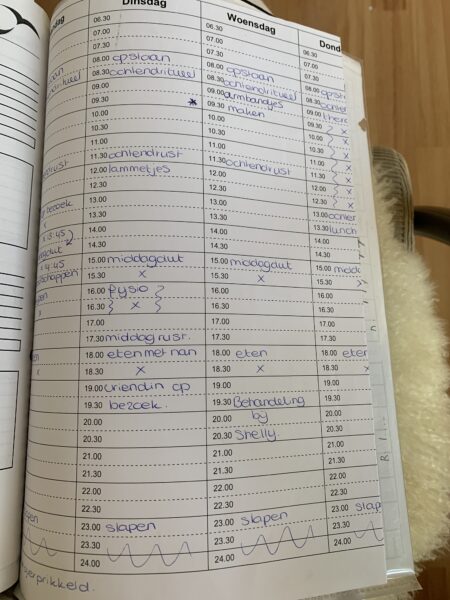 dag
Dinsdag
06.30
07.00
07.30
08.00 opstaan
08.30 ochtendritueel
09.00
09.30
10.00
10.30
11.00
11.30 ochtendrust
12.00 lammetjes
12.30
13.00
13.30
14.00
14.30
15.00 middagdut
15.30 x
16.00 fysio
16.30 x
17.00
17.30 middagrust.
18.00 eten met nan
18.30 x
19.00 vriendin op
19.30 bezoek.
20.00
20.30
21.00
21.30
22.00
22.30
23.00 slapen
23.30
24.00
Woensdag
06.30
07.00
07.30
08.00 opstaan
08.30 ochtendritueel
09.00 armbandjes
* 09.30 maken
10.00
10.30
11.00
11.30 ochtendrust
12.00
12.30
13.00
13.30
14.00
14.30
15.00 madagdut
15.30 x
16.00
16.30
17.00
17.30
18.00 eten
18.30 x
19.00
19.30 Behandeling
20.00 by
20.30 Shelly.
21.00
21.30
22.00
22.30
23.00 slapen
23.30
24.00
Dond
06.30
07.00
07.30
08.00 opst
08.30
09.00
09.30 x
10.00 x
10.30 x
11.00 x
11.30 x
12.00 x
12.30 x
13.00
13.30 lunch
14.00
14.30
15.00
15.30
16.00
16.30
17.00
17.30
18.00 eten
18.30 x
19.00
19.30
20.00
20.30
21.00
21.30
22.00
22.30
23.00 slap
23.30
24.00
bezoek
x 13:45
x 14:45
prikkeld.